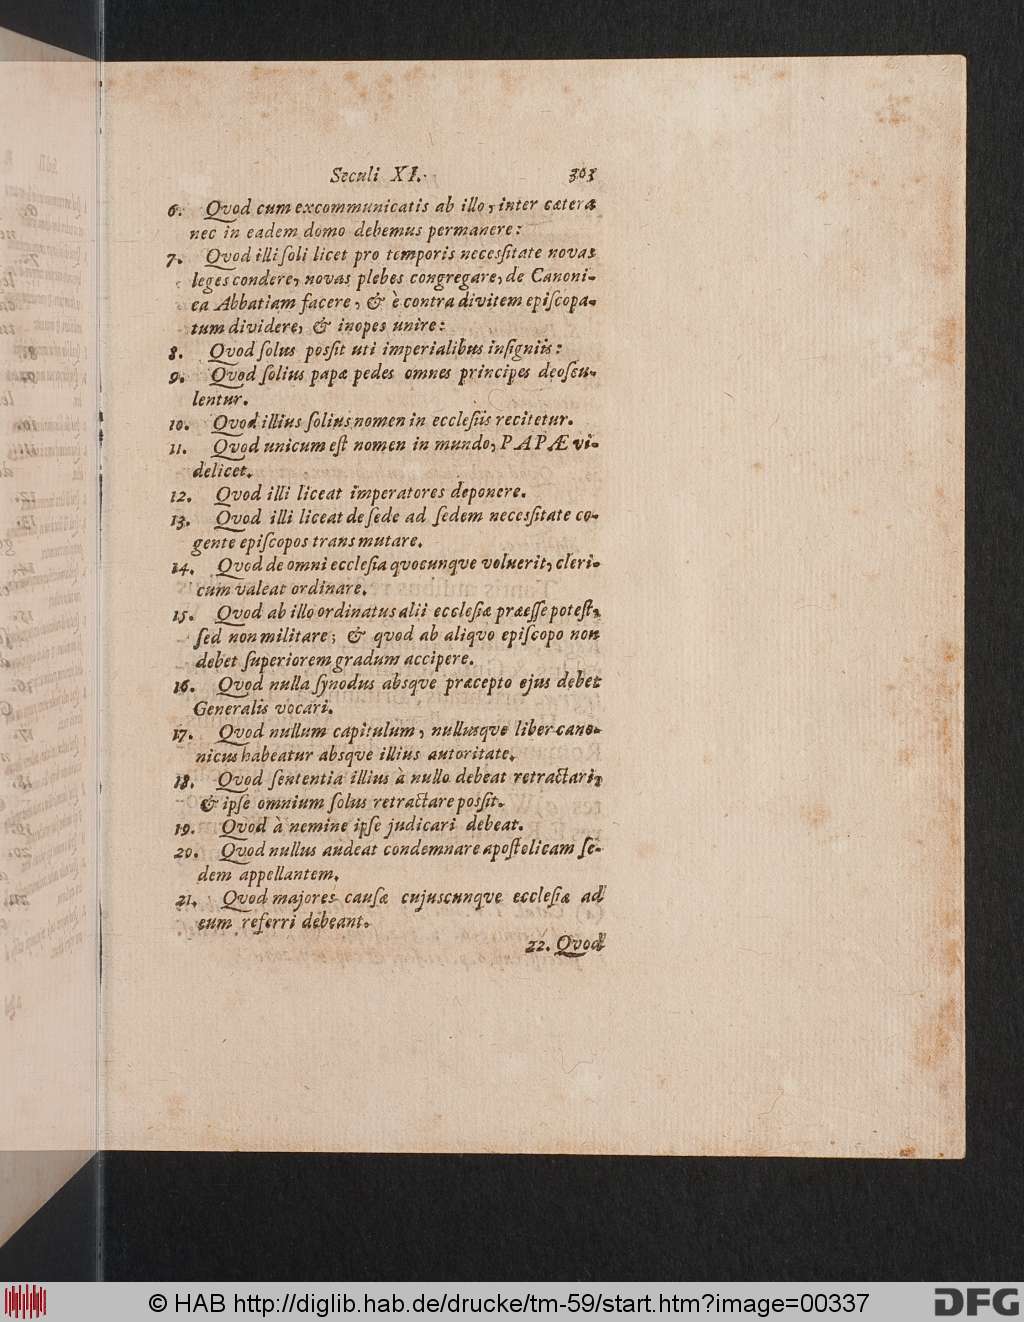 Seculi XI. 303
6. Quod cum excommunicatis ab illo, inter cætera
nec in eadem domo debemus permanere:
7. Quod illi ſoli licet pro temporis neceſſitate novas
leges condere, novas plebes congregare, de Canoni-
ca Abbatiam facere, & è contra divitem epiſcopa-
tum dividere, & inopes unire:
8. Quod ſolus poſſit uti imperialibus inſigniis:
9. Quod ſolius papæ pedes omnes principes deoſcu-
lentur.
10. Quod illius ſolius nomen in eccleſiis recitetur.
11. Quod unicum eſt nomen in mundo, PAPÆ vi-
delicet.
12. Quod illi liceat imperatores deponere.
13. Quod illi liceat de ſede ad ſedem neceſſitate co-
gente epiſcopos transmutare.
14. Quod de omni eccleſia quocunque voluerit, cleri-
cum valeat ordinare.
15. Quod ab illo ordinatus alii eccleſiæ præeſſe poteſt,
ſed non militare; & quod ab aliquo epiſcopo non
debet ſuperiorem gradum accipere.
16. Quod nulla ſynodus absque præcepto ejus debet
Generalis vocari.
17. Quod nullum capitulum, nullusque liber cano-
nicus habeatur absque illius autoritate.
18. Quod ſententia illius à nullo debeat retractari,
& ipſe omnium ſolus retractare poſſit.
19. Quod à nemine ipſe judicari debeat.
20. Quod nullus audeat condemnare apoſtolicam ſe-
dem appellantem.
21. Quod majores cauſæ cujuscunque eccleſiæ ad
eum referri debeant.
22. Quod
© HAB http://diglib.hab.de/drucke/tm-59/start.htm?image=00337
DFG